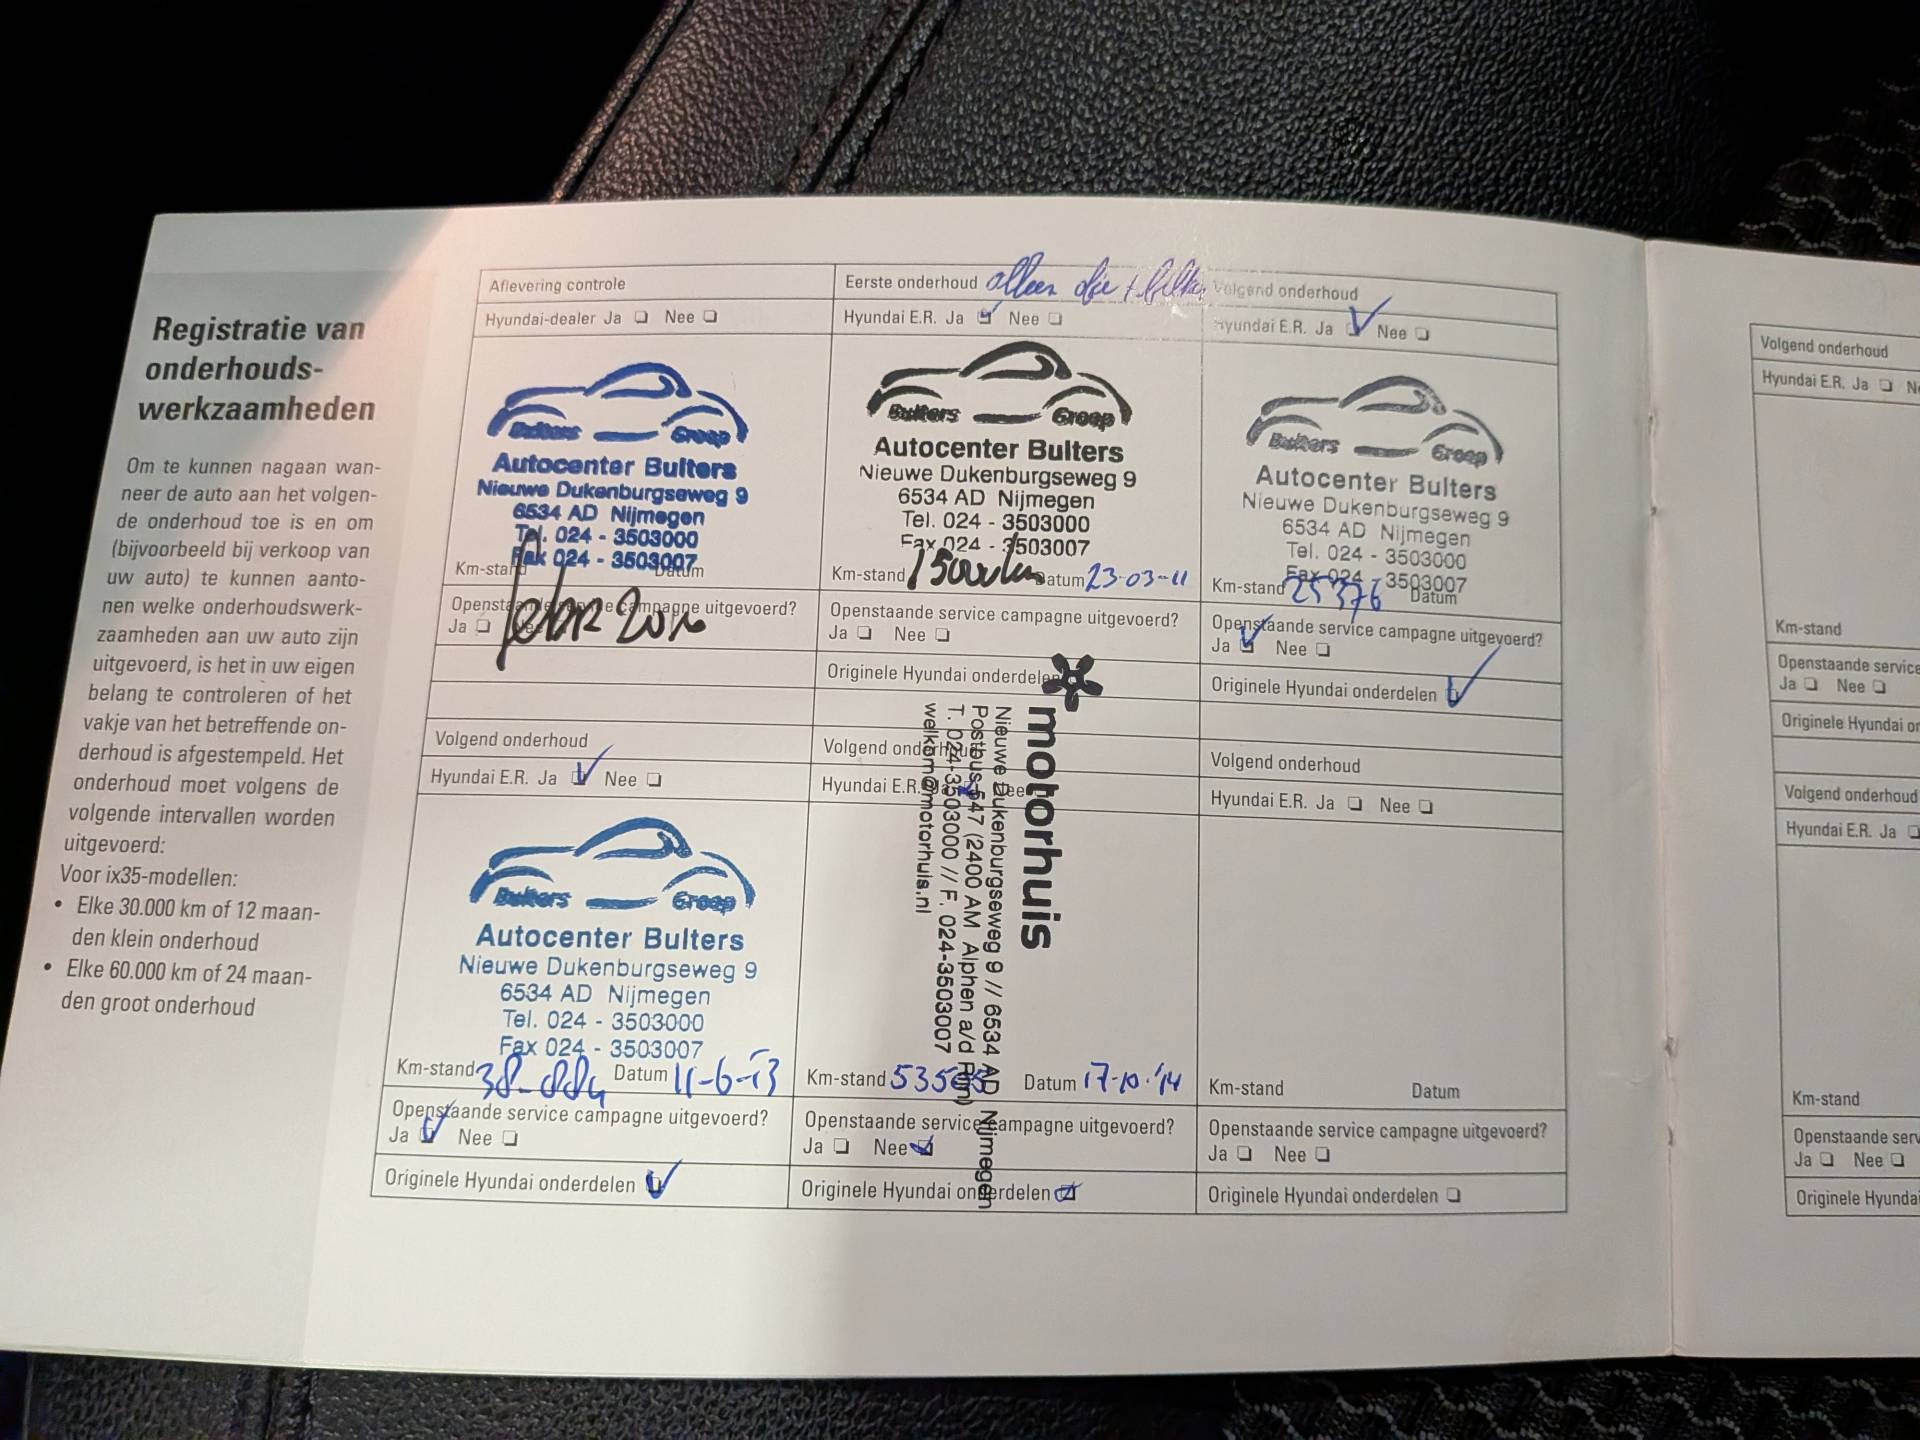 Registratie van
onderhouds-
werkzaamheden
Om te kunnen nagaan wan-
neer de auto aan het volgen-
de onderhoud toe is en om
(bijvoorbeeld bij verkoop van
uw auto) te kunnen aanto-
nen welke onderhoudswerk-
zaamheden aan uw auto zijn
uitgevoerd, is het in uw eigen
belang te controleren of het
vakje van het betreffende on-
derhoud is afgestempeld. Het
onderhoud moet volgens de
volgende intervallen worden
uitgevoerd:
Voor ix35-modellen:
• Elke 30.000 km of 12 maan-
den klein onderhoud
• Elke 60.000 km of 24 maan-
den groot onderhoud
Aflevering controle
Hyundai-dealer Ja Nee
Bulters Groep
Autocenter Bulters
Nieuwe Dukenburgseweg 9
6534 AD Nijmegen
Tel. 024 - 3503000
Fax 024 - 3503007
Km-stand Datum
2010
Openstaande service campagne uitgevoerd?
Ja Nee
Eerste onderhoud alleen olie +
Hyundai E.R. Ja Nee
Bulters Groep
Autocenter Bulters
Nieuwe Dukenburgseweg 9
6534 AD Nijmegen
Tel. 024 - 3503000
Fax 024 - 3503007
Km-stand 15000 km Datum 23-03-11
Openstaande service campagne uitgevoerd?
Ja Nee
Originele Hyundai onderdelen
Volgend onderhoud
Hyundai E.R. Ja Nee
Bulters Groep
Autocenter Bulters
Nieuwe Dukenburgseweg 9
6534 AD Nijmegen
Tel. 024 - 3503000
Fax 024 - 3503007
Km-stand 25376 Datum
Openstaande service campagne uitgevoerd?
Ja Nee
Originele Hyundai onderdelen
Volgend onderhoud
Hyundai E.R. Ja Nee
Bulters Groep
Autocenter Bulters
Nieuwe Dukenburgseweg 9
6534 AD Nijmegen
Tel. 024 - 3503000
Fax 024 - 3503007
Km-stand 38-084 Datum 11-6-13
Openstaande service campagne uitgevoerd?
Ja Nee
Originele Hyundai onderdelen
Volgend onderhoud
Hyundai E.R. Ja Nee
motorhuis
Nieuwe Dukenburgseweg 9 // 6534 AD Nijmegen
Postbus 547 (2400 AM Alphen a/d Rijn)
T. 024-3503000 // F. 024-3503007
welkom@motorhuis.nl
Km-stand Datum 17-10-'14
Openstaande service campagne uitgevoerd?
Ja Nee
Originele Hyundai onderdelen
Volgend onderhoud
Hyundai E.R. Ja Nee
Km-stand Datum
Openstaande service campagne uitgevoerd?
Ja Nee
Originele Hyundai onderdelen
Volgend onderhoud
Hyundai E.R. Ja
Km-stand
Openstaande service
Ja Nee
Originele Hyundai
Volgend onderhoud
Hyundai E.R. Ja
Km-stand
Openstaande
Ja Nee
Originele